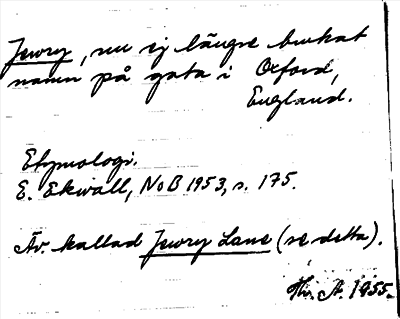 Jewry, nu ej längre brukat
namn på gata i Oxford,
England.
Etymologi.
E. Ekwall, NoB 1953, s. 175.
Äv. kallad Jewry Lane (se detta).
Hr. A. 1955.